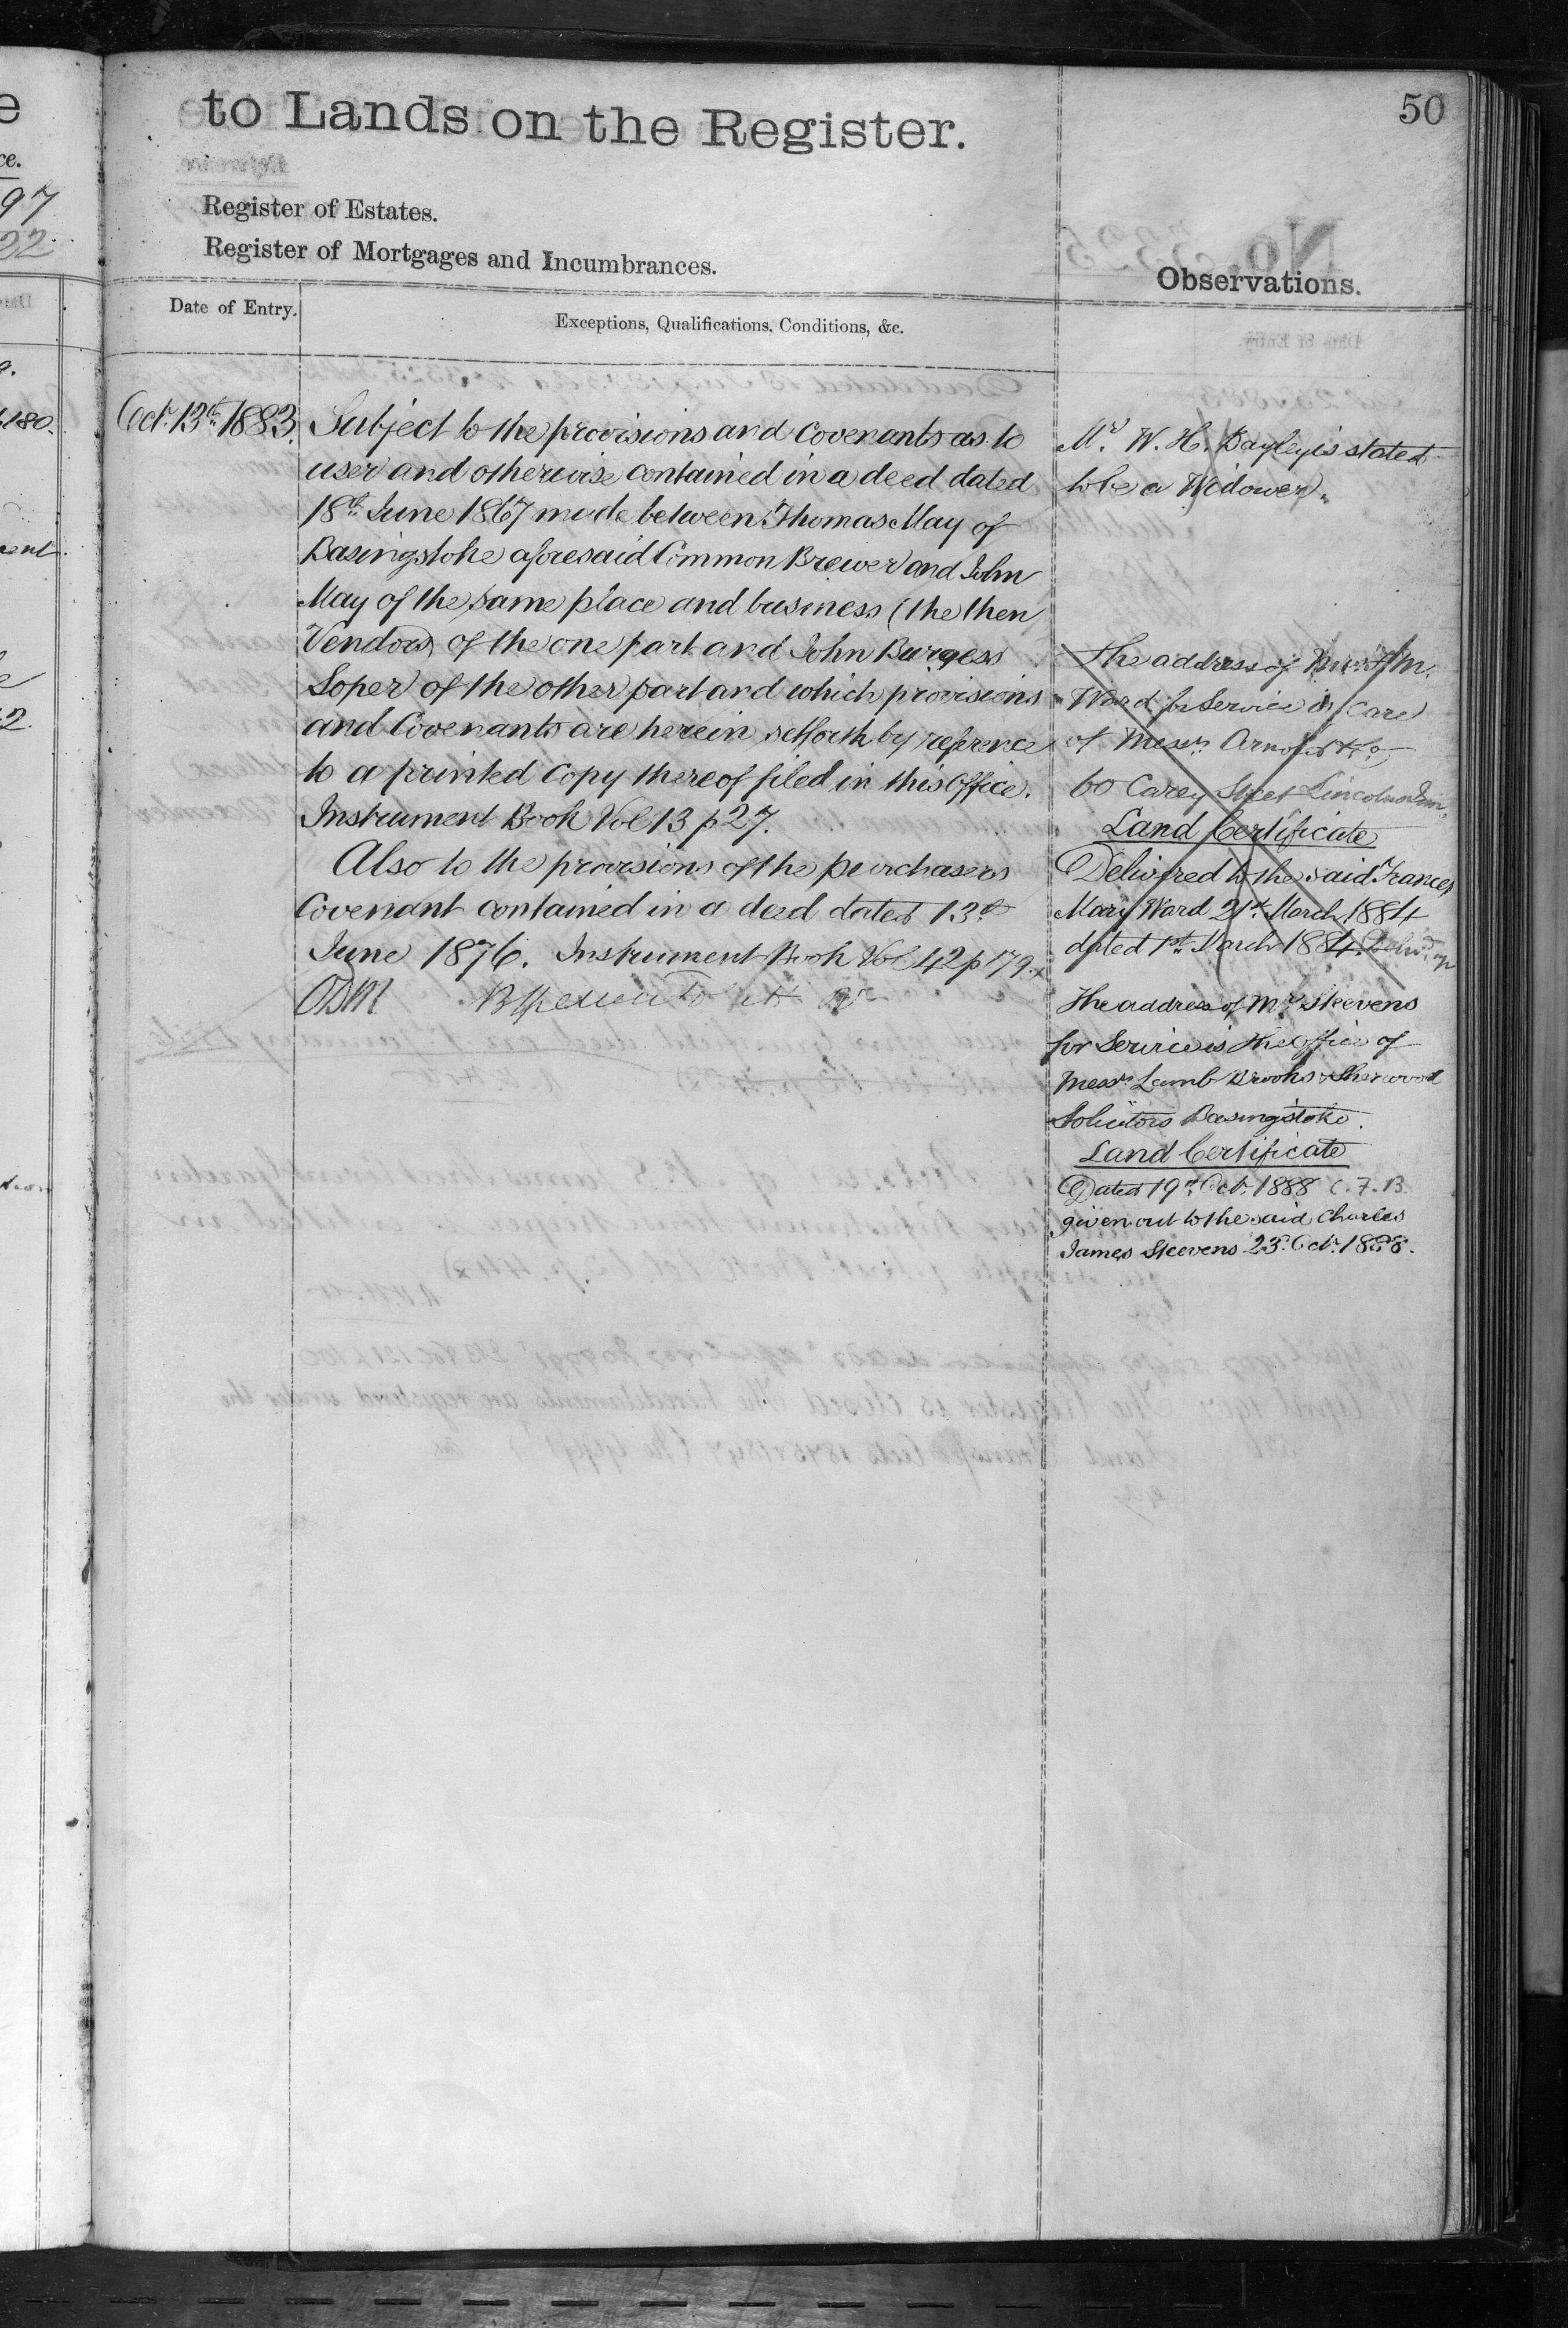 50
to Lands on the Register.
Register of Estates.
Register of Mortgages and Incumbrances.
Observations.
Date of Entry.
Exceptions, Qualifications, Conditions, &c.
Oct. 13th 1883.
Subject to the provisions and Covenants as to
user and otherwise contained in a deed dated
18th June 1867 made between Thomas May of
Basingstoke aforesaid Common Brewer and John
May of the same place and business (the then
Vendors) of the one part and John Burgess
Soper of the other part and which provisions
and Covenants are herein setforth by reference
to a printed Copy thereof filed in this Office.
Instrument Book Vol 13 p 27.
Also to the provisions of the purchasers
Covenant contained in a deed dated 13th
June 1876. Instrument Book Vol 42 p 179.
Mr. W. H. Bayley is stated
to be a Widower.
The address of Mrs F M.
Ward for Service is Care
of Messrs. Arnold & Co
60 Carey Street Lincolns Inn
Land Certificate
Delivered to the said Frances
Mary Ward 21st March 1884
dated 1st March 1884.
The address of Mr Steevens
for Service is the Office of
Messrs Lamb Brooks & Sherwood
Solicitors Basingstoke.
Land Certificate
Dated 19th Oct. 1888 C. F. B.
given out to the said Charles
James Steevens 23. Oct. 1888.